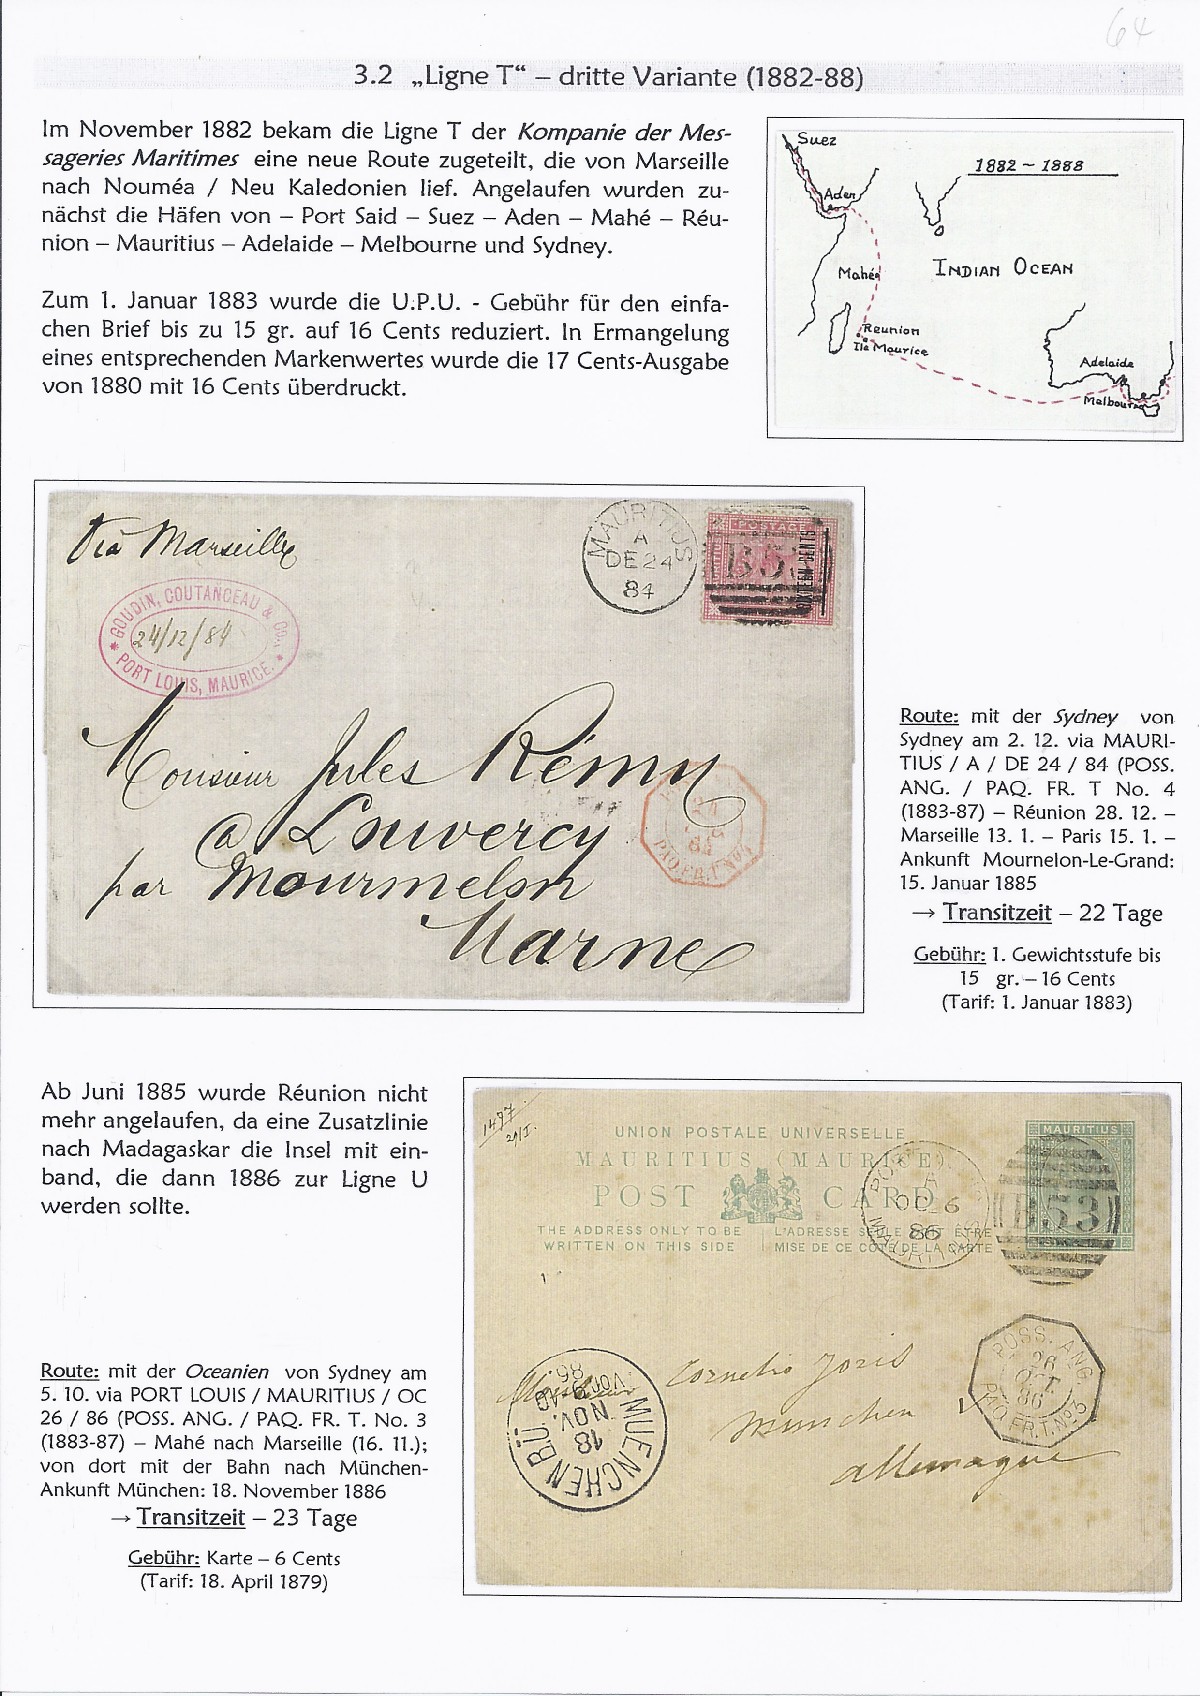 64
3.2 „Ligne T“ – dritte Variante (1882-88)
Im November 1882 bekam die Ligne T der Kompanie der Mes-
sageries Maritimes eine neue Route zugeteilt, die von Marseille
nach Nouméa / Neu Kaledonien lief. Angelaufen wurden zu-
nächst die Häfen von – Port Said – Suez – Aden – Mahé – Réu-
nion – Mauritius – Adelaide – Melbourne und Sydney.
Zum 1. Januar 1883 wurde die U.P.U. - Gebühr für den einfa-
chen Brief bis zu 15 gr. auf 16 Cents reduziert. In Ermangelung
eines entsprechenden Markenwertes wurde die 17 Cents-Ausgabe
von 1880 mit 16 Cents überdruckt.
Suez
1882 ~ 1888
Aden
Mahé
INDIAN OCEAN
Reunion
Ile Maurice
Adelaide
Melbourne
Via Marseille
MAURITIUS
A
DE 24
84
POSTAGE
B53
SIXTEEN CENTS
GOUDIN, COUTANCEAU & Co.
24/12/84
PORT LOUIS, MAURICE.
Monsieur Jules Rémy
à Louvercy
par Mourmelon
Marne
84
PAQ.FR.T Nº4
Route: mit der Sydney von
Sydney am 2. 12. via MAURI-
TIUS / A / DE 24 / 84 (POSS.
ANG. / PAQ. FR. T No. 4
(1883-87) – Réunion 28. 12. –
Marseille 13. 1. – Paris 15. 1. –
Ankunft Mournelon-Le-Grand:
15. Januar 1885
→ Transitzeit – 22 Tage
Gebühr: 1. Gewichtsstufe bis
15 gr. – 16 Cents
(Tarif: 1. Januar 1883)
Ab Juni 1885 wurde Réunion nicht
mehr angelaufen, da eine Zusatzlinie
nach Madagaskar die Insel mit ein-
band, die dann 1886 zur Ligne U
werden sollte.
1497
29/I.
UNION POSTALE UNIVERSELLE
MAURITIUS (MAURICE)
POST CARD
THE ADDRESS ONLY TO BE
WRITTEN ON THIS SIDE
L'ADRESSE SEULE DOIT ÊTRE
MISE DE CE CÔTÉ DE LA CARTE
MAURITIUS
B53
A
OC 6
86
MAURITIUS
POSS. ANG.
26
OCT.
86
PAQ.FR.T.Nº3
Monsieur Cornelio Joris
München
Allemagne
MUENCHEN BÜ.
18
NOV.
VOR 9-10
86
Route: mit der Oceanien von Sydney am
5. 10. via PORT LOUIS / MAURITIUS / OC
26 / 86 (POSS. ANG. / PAQ. FR. T. No. 3
(1883-87) – Mahé nach Marseille (16. 11.);
von dort mit der Bahn nach München-
Ankunft München: 18. November 1886
→ Transitzeit – 23 Tage
Gebühr: Karte – 6 Cents
(Tarif: 18. April 1879)